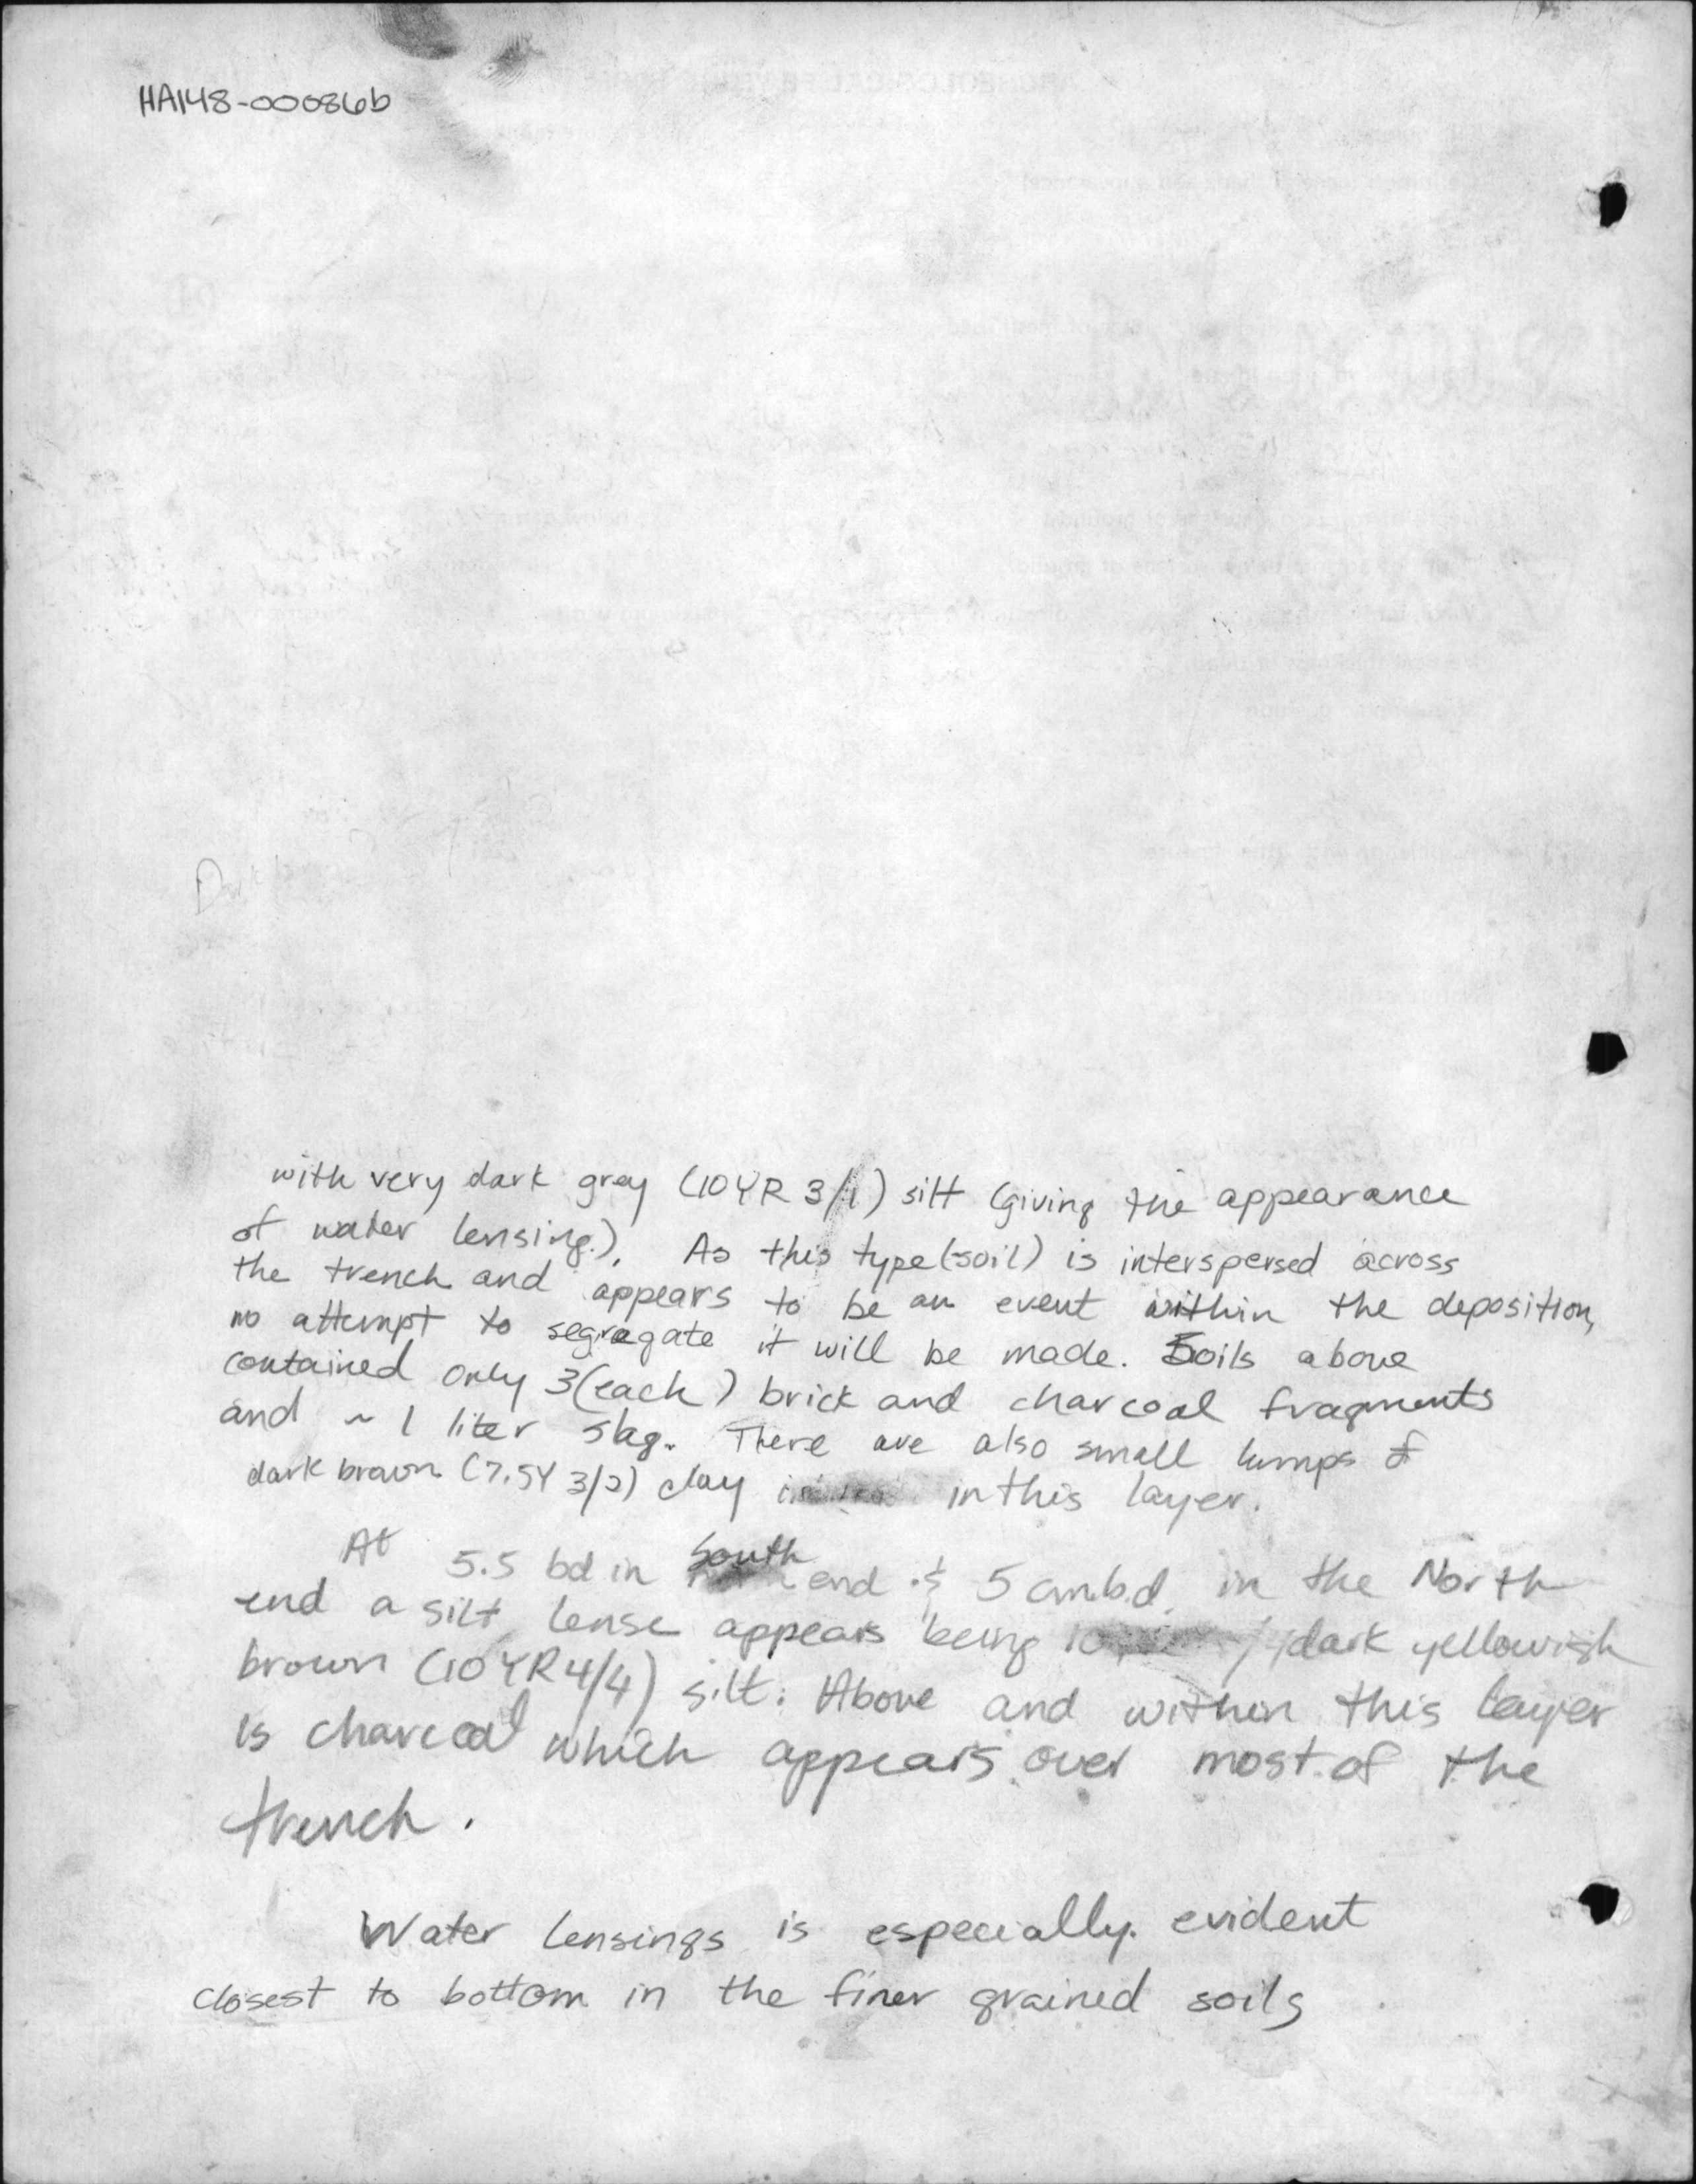 HA148-00086b
with very dark gray (10YR 3/1) silt (giving the appearance
of water lensing.). As this type (soil) is interspersed across
the trench and appears to be an event within the deposition,
no attempt to segregate it will be made. Soils above
contained only 3 (each) brick and charcoal fragments
and ~ 1 liter slag. There are also small lumps of
dark brown (7.5Y 3/2) clay in this layer.
At 5.5 bd in South end & 5 cmb.d. in the North
end a silt lense appears being dark yellowish
brown (10YR 4/4) silt. Above and within this layer
is charcoal which appears over most of the
trench.
Water lensings is especially evident
closest to bottom in the finer grained soils